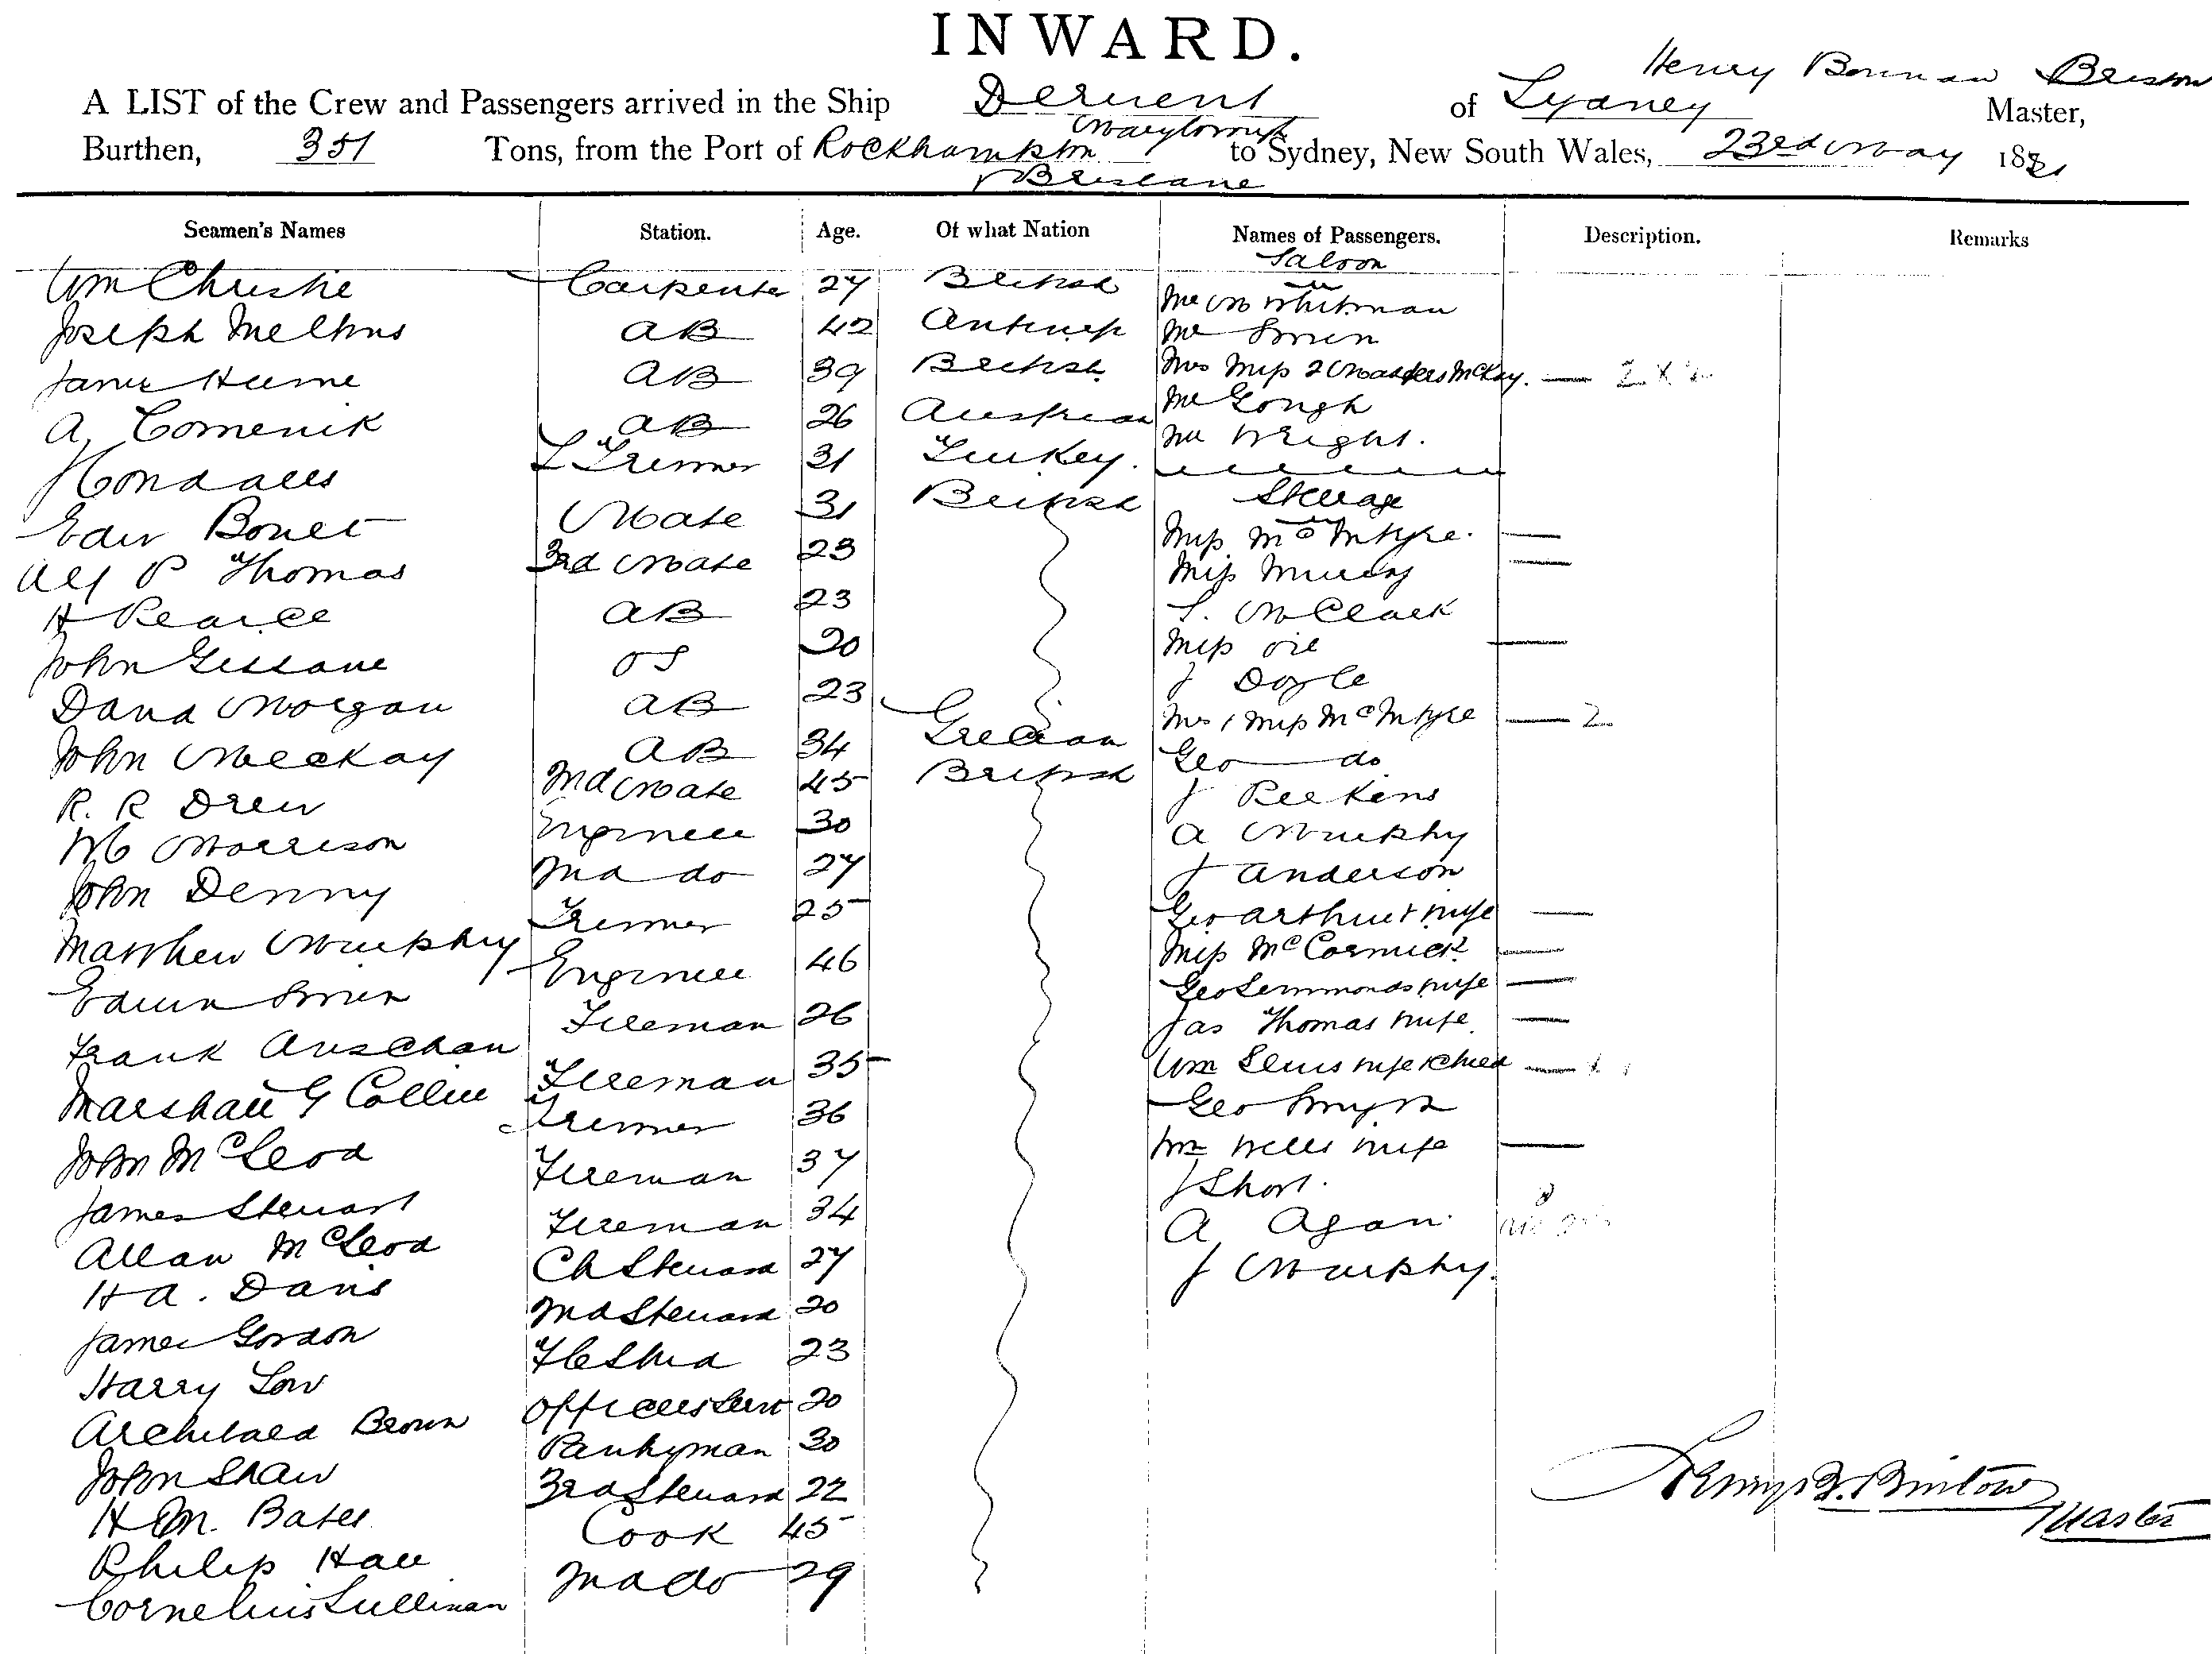 INWARD.
Henry Bowman
A LIST of the Crew and Passengers arrived in the Ship Derwent of Sydney Master,
Maryborough
Burthen, 351 Tons, from the Port of Rockhampton to Sydney, New South Wales, 23rd May 1881
& Brisbane
Seamen's Names Station. Age. Of what Nation Names of Passengers. Description. Remarks
Saloon
Wm Christie Carpenter 27 British Mr M Whitman
Joseph Meltins AB 42 Antwerp Mr Smith
James Hume AB 39 British Mrs Miss 2 Masters McKay. — 2
A. Comenik AB 26 Austrian Mr Gough
Mr Wright.
J Condales L Trimmer 31 Turkey.
Edw Bonet Mate 31 British Steerage
Miss McIntyre. —
Alf P Thomas 3rd Mate 23 Miss Murray —
H Pearce AB 23 S. McClark
John Gissane OS 20 Miss —
J Doyle
David Morgan AB 23 Mrs & Miss McIntyre — 2
John Meckay AB 34 Grecian Geo — do
R. R Drew 2nd Mate 45 British J Perkins
W C Morrison Engineer 30 A Murphy
John Denny 2nd do 27 J Anderson
Matthew Murphy Trimmer 25 Geo Arthur & wife —
Miss McCormick —
Edwin Smith Engineer 46 Geo Lemmonds wife —
Frank Auschau Fireman 26 Jas Thomas wife —
Marshall G Collie Fireman 35 Wm Lewis wife & child —
John McLeod Trimmer 36 Geo Smyth
James Stewart Fireman 37 Wm Wells wife —
J Short.
Allan McLeod Fireman 34 A Agan
H A. Davis Ch Steward 27 J Murphy.
James Gordon 2nd Steward 20
Harry Low F C Stwd 23
Archibald Brown Officers Servt 20
John Shaw Pantryman 30
H M. Bates 3rd Steward 22
Philip Hall Cook 45
Cornelius Sullivan 2nd do 29
Henry B. Bristow
Master